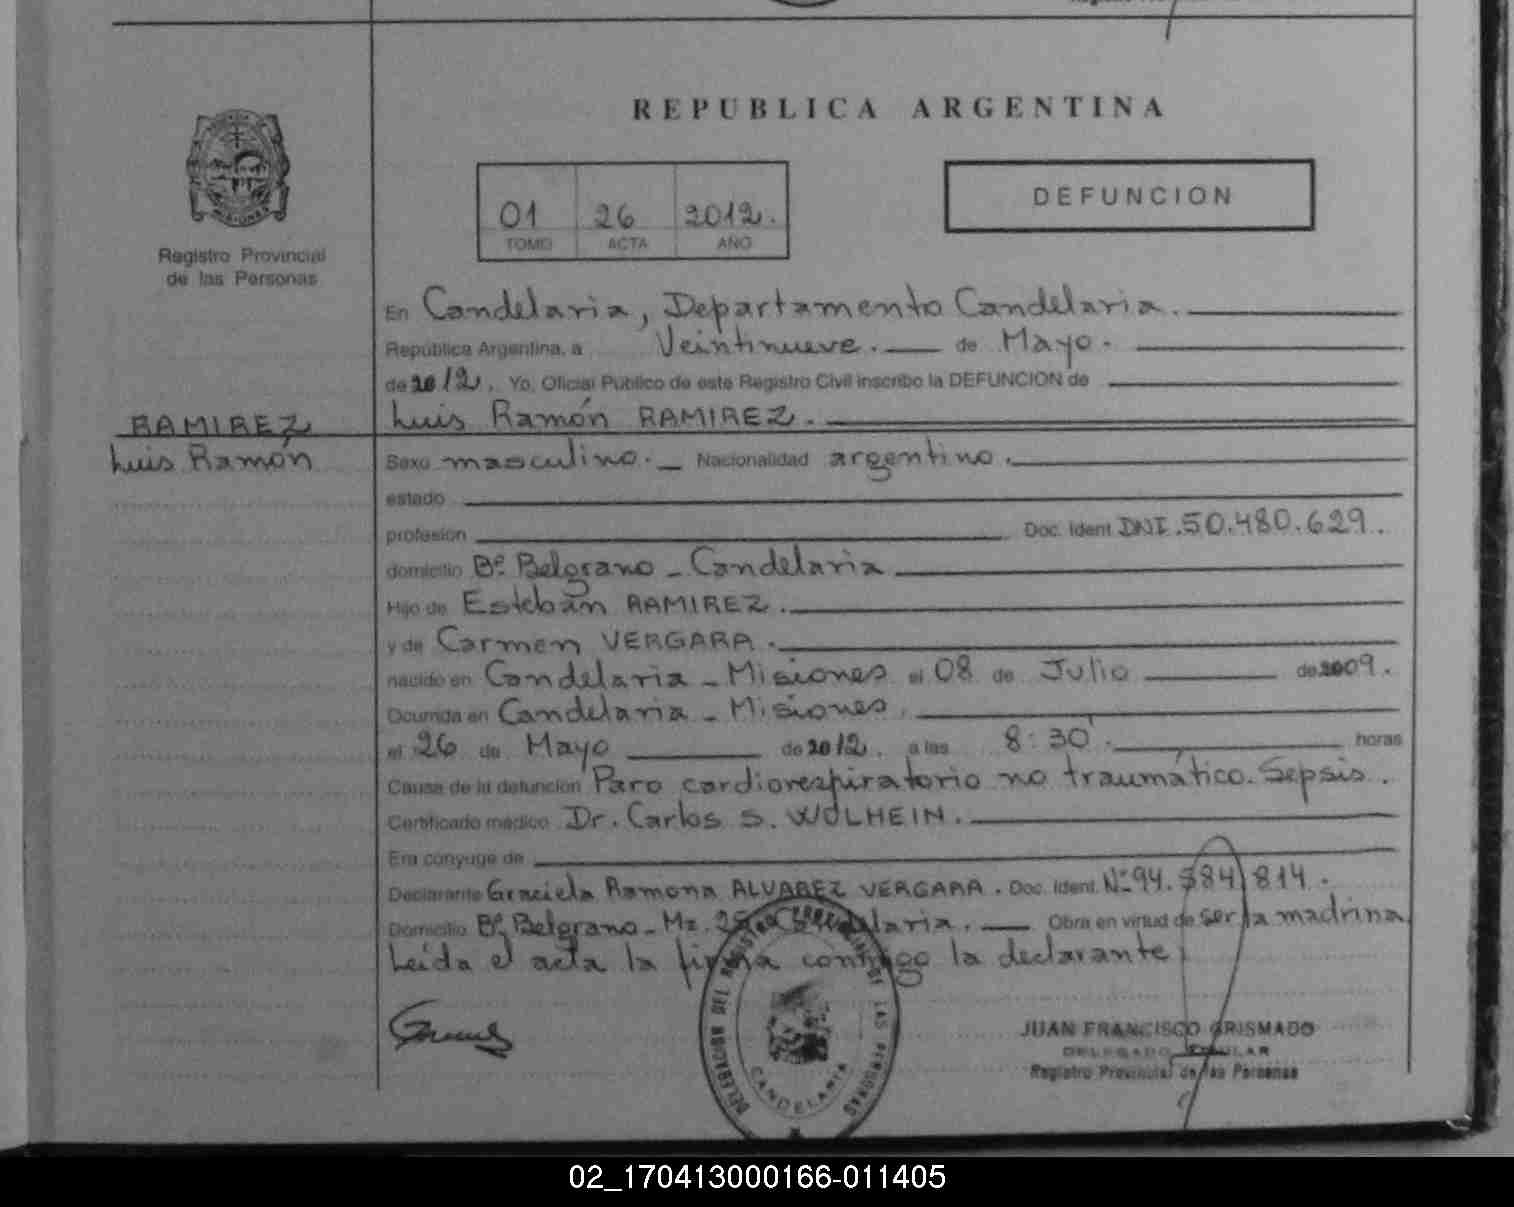 REPUBLICA ARGENTINA
MISIONES
Registro Provincial
de las Personas
01 26 2012.
TOMO ACTA AÑO
DEFUNCION
En Candelaria, Departamento Candelaria.
República Argentina, a Veintinueve. de Mayo.
de 2012. Yo, Oficial Público de este Registro Civil inscribo la DEFUNCION de
RAMIREZ
Luis Ramón
Luis Ramón RAMIREZ.
Sexo masculino. Nacionalidad argentino.
estado
profesión Doc. Ident. DNI. 50.480.629.
domicilio Bº Belgrano - Candelaria
Hijo de Esteban RAMIREZ.
y de Carmen VERGARA.
nacido en Candelaria - Misiones el 08 de Julio de 2009.
Ocurrida en Candelaria - Misiones.
el 26 de Mayo de 2012. a las 8:30'. horas
Causa de la defunción Paro cardiorespiratorio no traumático. Sepsis.
Certificado médico Dr. Carlos S. WOLHEIN.
Era cónyuge de
Declarante Graciela Ramona ALVAREZ VERGARA. Doc. Ident. Nº 94. 814.
Domicilio Bº Belgrano - Mz. Candelaria. Obra en virtud de ser la madrina
Leída el acta la firma conmigo la declarante
DELEGACION DEL REGISTRO PROVINCIAL DE LAS PERSONAS
CANDELARIA
JUAN FRANCISCO GRISMADO
DELEGADO TITULAR
Registro Provincial de las Personas
02_170413000166-011405